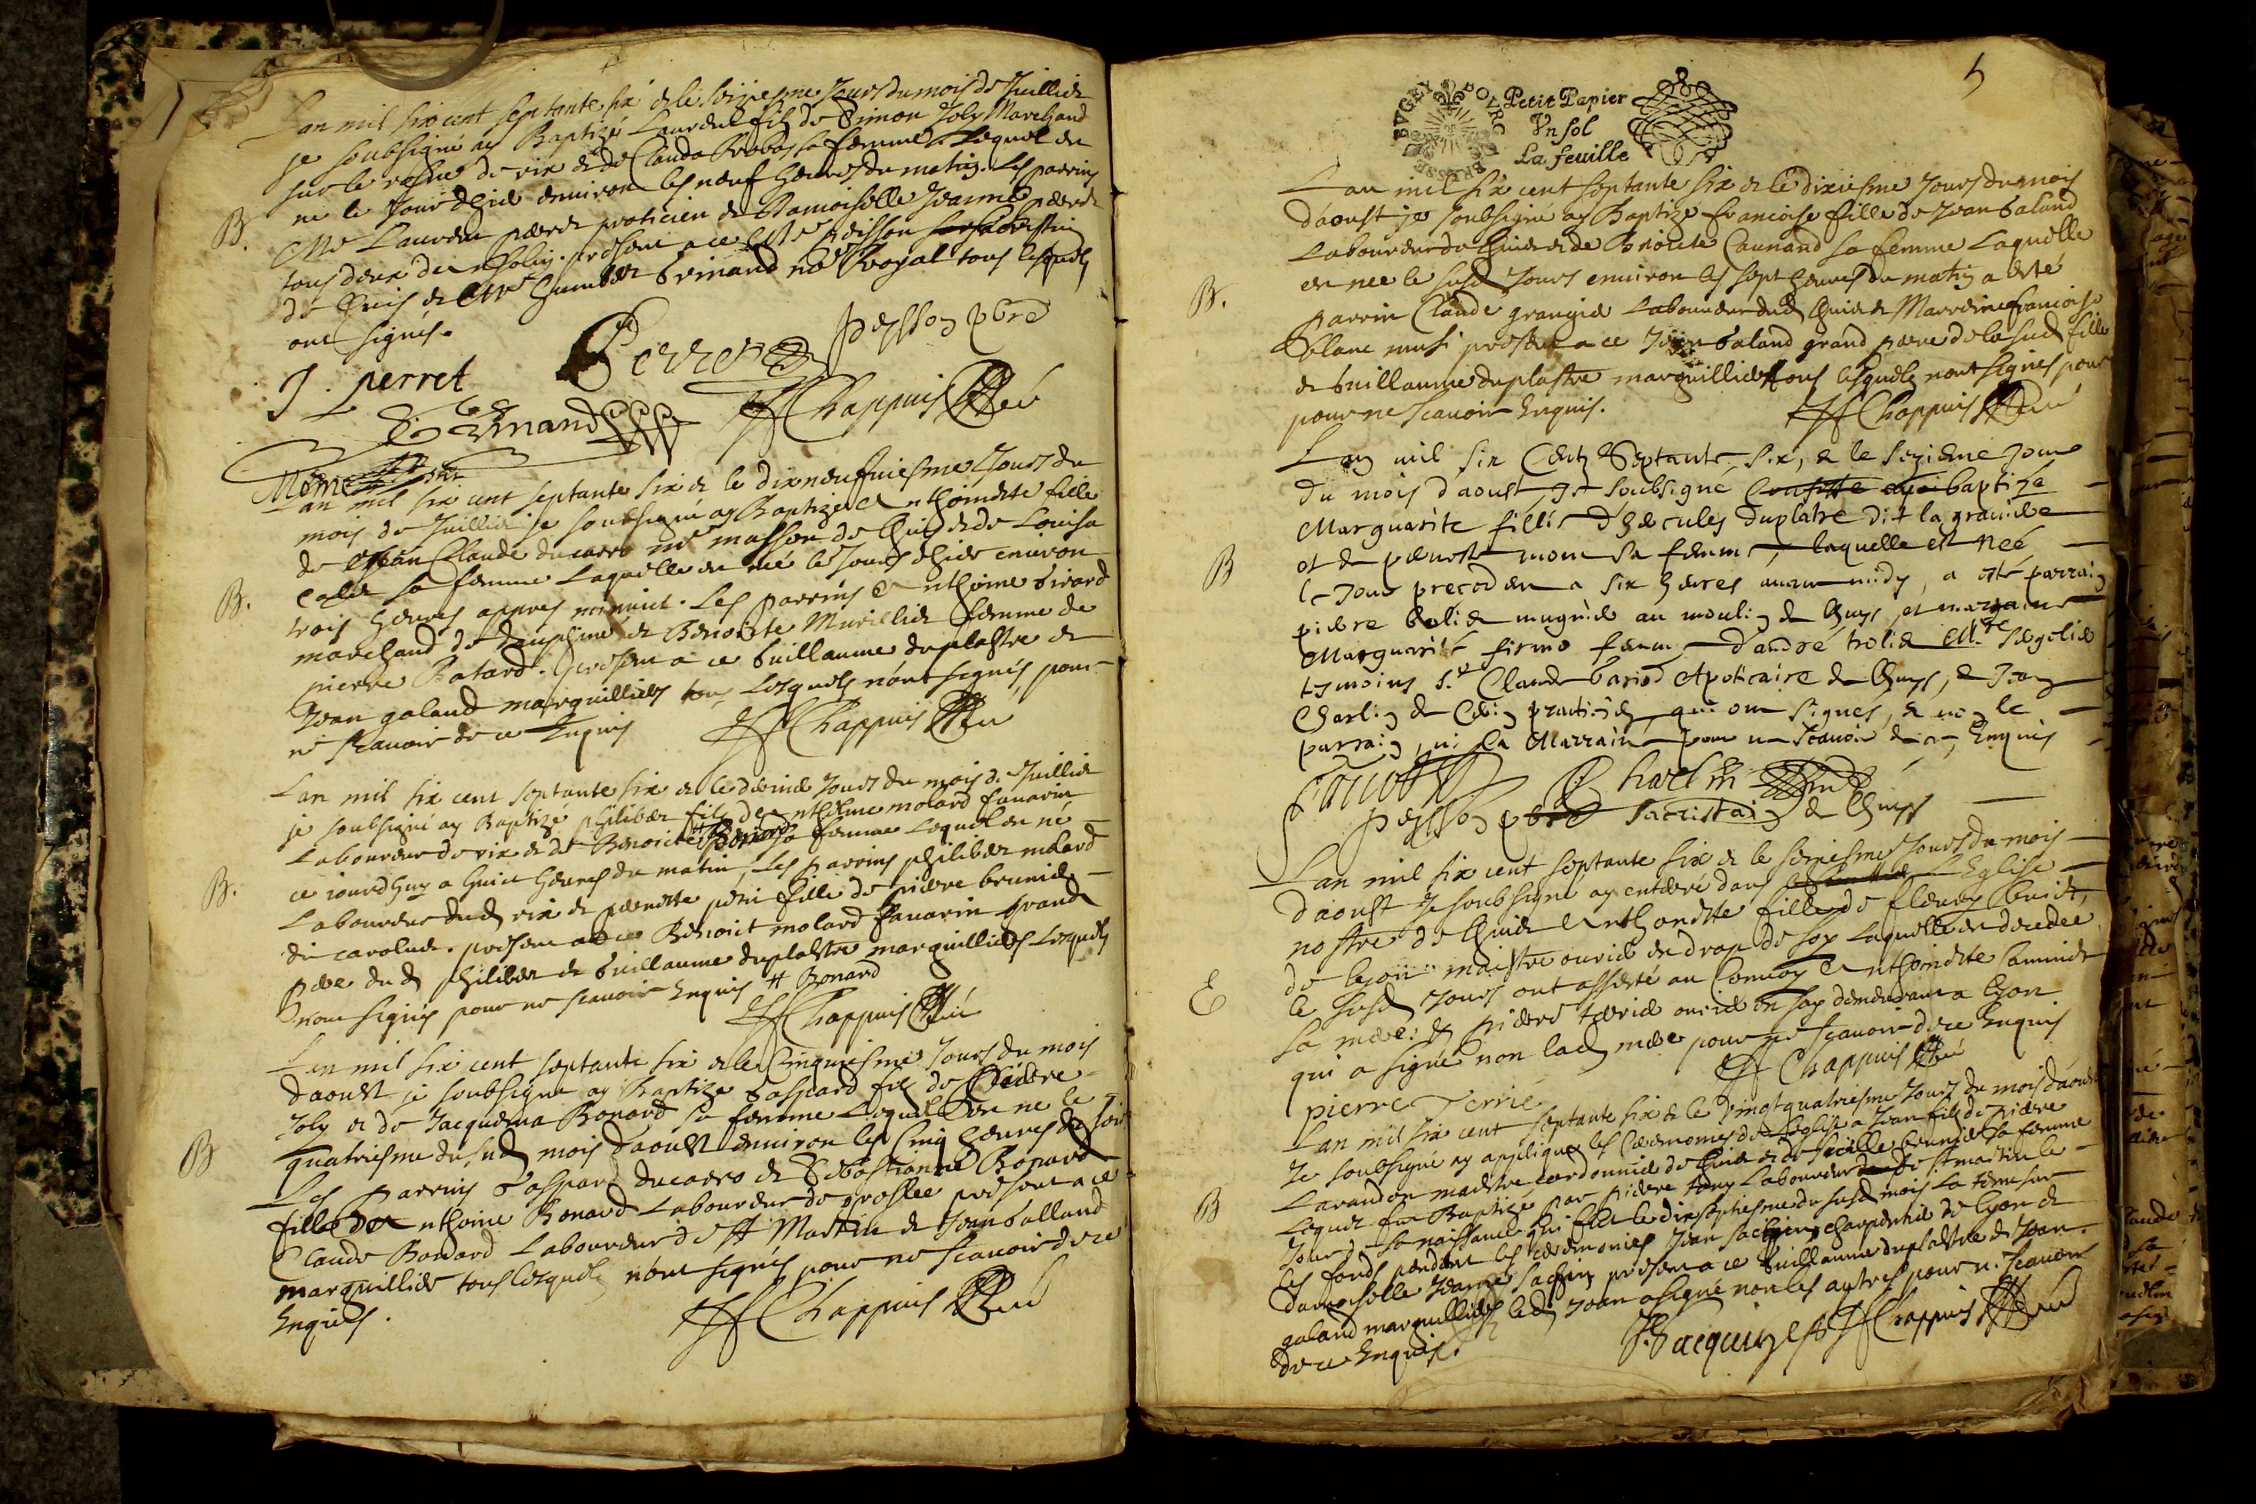 Lan mil six cent septante six & le seiziesme Jours du mois de Juilliet
je soubsigné ay Baptizé Laurent fils de Simon Joly Marchand
sur le rosne de rix & de Clauda sa femme Lequel est
ne le Jour dhier environ les neuf heures du matin. Les parrins
B.
Mre Laurent perret praticien & Damoiselle Jeanne perret
tous deux de presents a ce Mre peisson
de Chuis & Mre Humbert Brinand no.re Royal tous lesquels
ont signés.
Perret peysson pbre
J. perret
Brinand Chappuis
Lan mil six cent septante six & le dixneufuiesme Jours du
mois de Juilliet je soubsigné ay Baptizé Anthoinette fille
de Jean Claude ducarro me masson de Chuis & de Louisa
B.
sa femme Laquelle est née le Jours dhier environ
trois heures appres minuict. Les parrins Anthoine Girard
marchand de dauphiné & Benoite femme de
pierre Batard. presents a ce Guillaume duplastre &
Jean galand marguilliers tous Lesquels n'ont signés pour
ne scauoir de ce Enquis Chappuis
Lan mil six cent septante six & le dernier Jours du mois de Juilliet
je soubsigné ay Baptizé philibert fils de Anthelme molard fanarin
Laboureur de rix & de Benoite + sa femme Lequel est né
ce jourdhuy a huict heures du matin, Les parrins philibert molard
B.
Laboureur dud rix & pernette petit fille de pierre brunier
de carolud. presents a ce Benoict molard fanarin grand
pere dud philibert & Guillaume duplastre marguilliers Lesquels
n'ont signés pour ne scauoir Enquis + Bonard
Chappuis
Lan mil six cent septante six & le Cinquiesme Jours du mois
daoust je soubsigne ay Baptize Gaspard fils de Pierre
Joly & de Jacquema Bonard sa femme Lequel est ne le
B
quatriesme dusud mois daoust environ les Cinq heures du soir
Les parrins Gaspard ducarro & Sebastianne Bonard
fille de Anthoine Bonard Laboureur de groslee presents a ce
Claude Bonard Laboureur de St Martin & Jean Galland
marguillier tous Lesquels n'ont signés pour ne scauoir de ce
Enquis. Chappuis
5
BVGEY BOVRG BRESSE
Petit Papier
Vn sol
La feuille
Lan mil six cent septante six & le dixiesme Jours du mois
daoust je soubsigné ay Baptize francoise fille de Jean Galand
Laboureur de Chuis & de Benoite Caunand sa femme Laquelle
est nee le susd Jours environ les sept heures du matin a esté
B.
parrin Claude grangier Laboureur dud Chuis & Marreine francoise
blanc aussi presents a ce Jean Galand grand pere de lasud fille
& Guillaume duplastre marguilliers tous lesquels nont signés pour
pour ne scauoir Enquis. Chappuis
Lan mil six Cents Septante, six, & le sezieme jour
du mois d'aoust, je soubsigne baptize
Marguarite fillie d'hercules duplatre dit la graviere
et de pernette mom sa femme, laquelle est Neé
B
le jour precedent a six heures auant midy, a esté parrain
piere bolie mugnier au moulin de Chuys, et marraine
Marguarite firmo femme d'andré trolie
tesmoins Sr Claude bariod Apoticaire de Chuys, & Jean
Charlin de Cisin praticien, qui ont signes, & non le
parrain, ni la Marraine pour ne scauoir de ce Enquis
Charlin
peysson pbre Sacristain de Chuys
Lan mil six cent septante six & le seiziesme Jours du mois
daoust Je soubsigné ay enterré dans L'Eglise
nostre de Chuis Anthonette fille de fleury
de lyon maistre ourier en drap de soy Laquelle est decedee
E
le susd Jours ont assisté au Convoy Anthoinette
sa mere & pierre terrie ourier en soy demeurant a Lyon
qui a signé non lad mere pour ne scauoir de ce Enquis
pierre Terrie Chappuis
Lan mil six cent septante six & le vingtquatriesme Jours du mois daoust
Je soubsigné ay appliqué les Ceremonies de Leglise a Jean fils de pierre
Larandon maistre cordonnier de Chuis & de brunier sa femme
B
Lequel fut Baptizé par pierre Laboureur de St martin le
Jour de sa naissance qui fut le dixseptiesme du susd mois La tenu sur
les fonds pendant les ceremonies Jean charpentier de lyon &
damoiselle Jeanne presents a ce Guillaume duplastre & Jean
galand marguilliers led Jean a signé non les autres pour ne scauoir
de ce Enquis. Chappuis